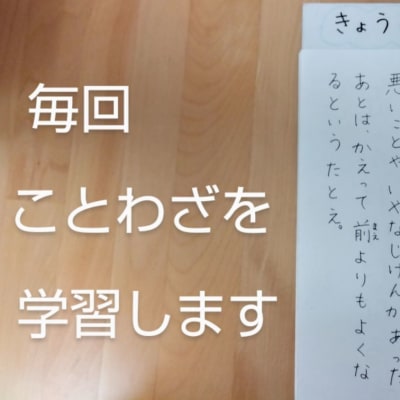 毎回
ことわざを
学習します
きょう
悪いことやいやなじけんがあった
あとは、かえって前よりもよくな
るというたとえ。
まえ